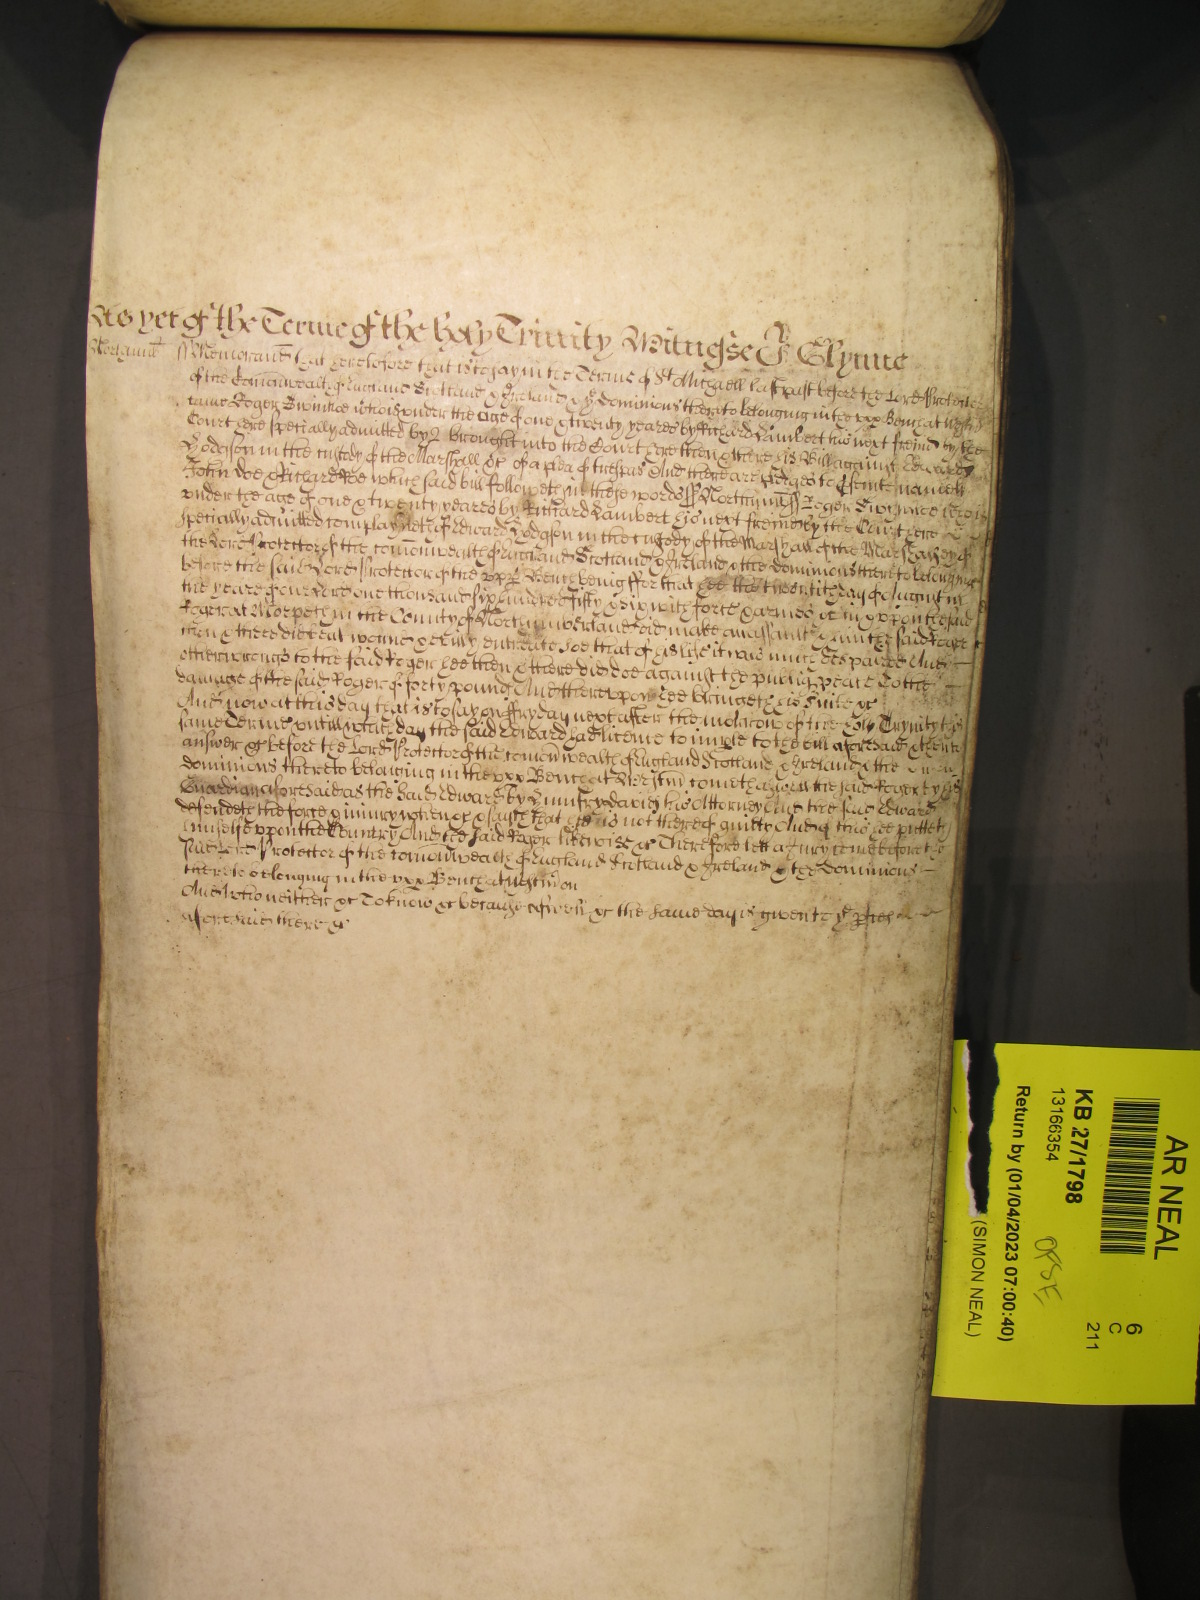 As yet of the Terme of the holy Trinity Witnesse J Glynne
Northumb ss Memorand that heretofore that is to say in the Terme of St Michaell last past before the Lord Protector
of the Comonwealth of England Scotland & Ireland & ye Dominions thereto belonging in the upp Bench at Westm
came Roger Swinhoe who is under the age of one & twenty yeares by Richard Lambert his next freind by the
Court here specially admitted & brought into the Court here then & there his Bill against Edward
Hodgson in the custody of the Marshall &c of a plea of trespas And there are pledges to prosecute namely
John Doe & Richard Roe which said bill followeth in these words ss Northumb ss Roger Swinhoe who is
under the age of one & twenty yeares by Richard Lambert his next freind by the Court here
specially admitted complayneth of Edward Hodgson in the custody of the Marshall of the Marshalsey of
the Lord Protector of the comonwealth of England Scotland & Ireland & the dominions thereto belonging
before the said Lord Protector of the upp Bench being ffor that hee the twentith day of August in
the yeare of our Lord one thousand six hundred fifty & six with force & armes &c in & upon the said
Roger at Morpeth in the County of Northumberland did make an assault & him the said Roger
then & there did beat wound & evilly entreate soe that of his life it was much despaired And
other wrongs to the said Roger hee then & there did doe against the publiq peace To the
damage of the said Roger of forty pounds And thereupon hee bringeth his suite &c
And now at this day that is to say on ffryday next after the morrow of the holy Trynity this
same Terme untill which day the said Edward had licence to imparle to the bill aforesaid & then to
answer &c before the Lord Protector of the comonwealth of England Scotland & Ireland & the
dominions thereto belonging in the upp Bench at Westm cometh as well the said Roger by his
Guardian aforesaid as the said Edward by Humfry Davies his Attorney And the said Edward
defendeth the force & iniury when &c & saith that hee is not thereof guilty And of this hee putteth
himselfe uppon the Country And the said Roger likewise &c Therefore lett a Jury come before the
said Lord Protector of the comonwealth of England Scotland & Ireland & the Dominions
thereto belonging in the upp Bench at Westm on
And who neither &c To know &c because aswell &c the same day is given to ye pties
aforesaid there &c
AR NEAL
6
C
211
KB 27/1798
13166354
Return by (01/04/2023 07:00:40)
(SIMON NEAL)